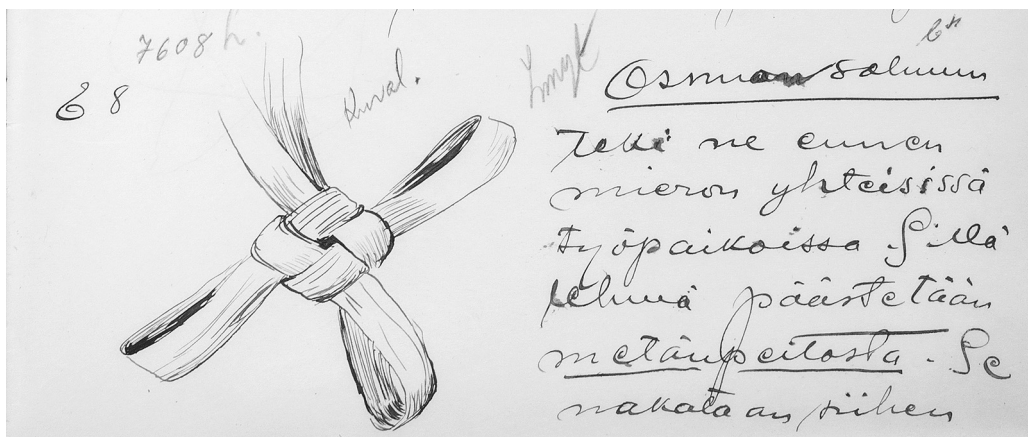 7608
E 8
Kuval.
Osmonsolmun
Teki ne ennen
mieron yhteisissä
työpaikoissa. Sillä
lehmä päästetään
metänpeitosta. Se
nakataan siihen